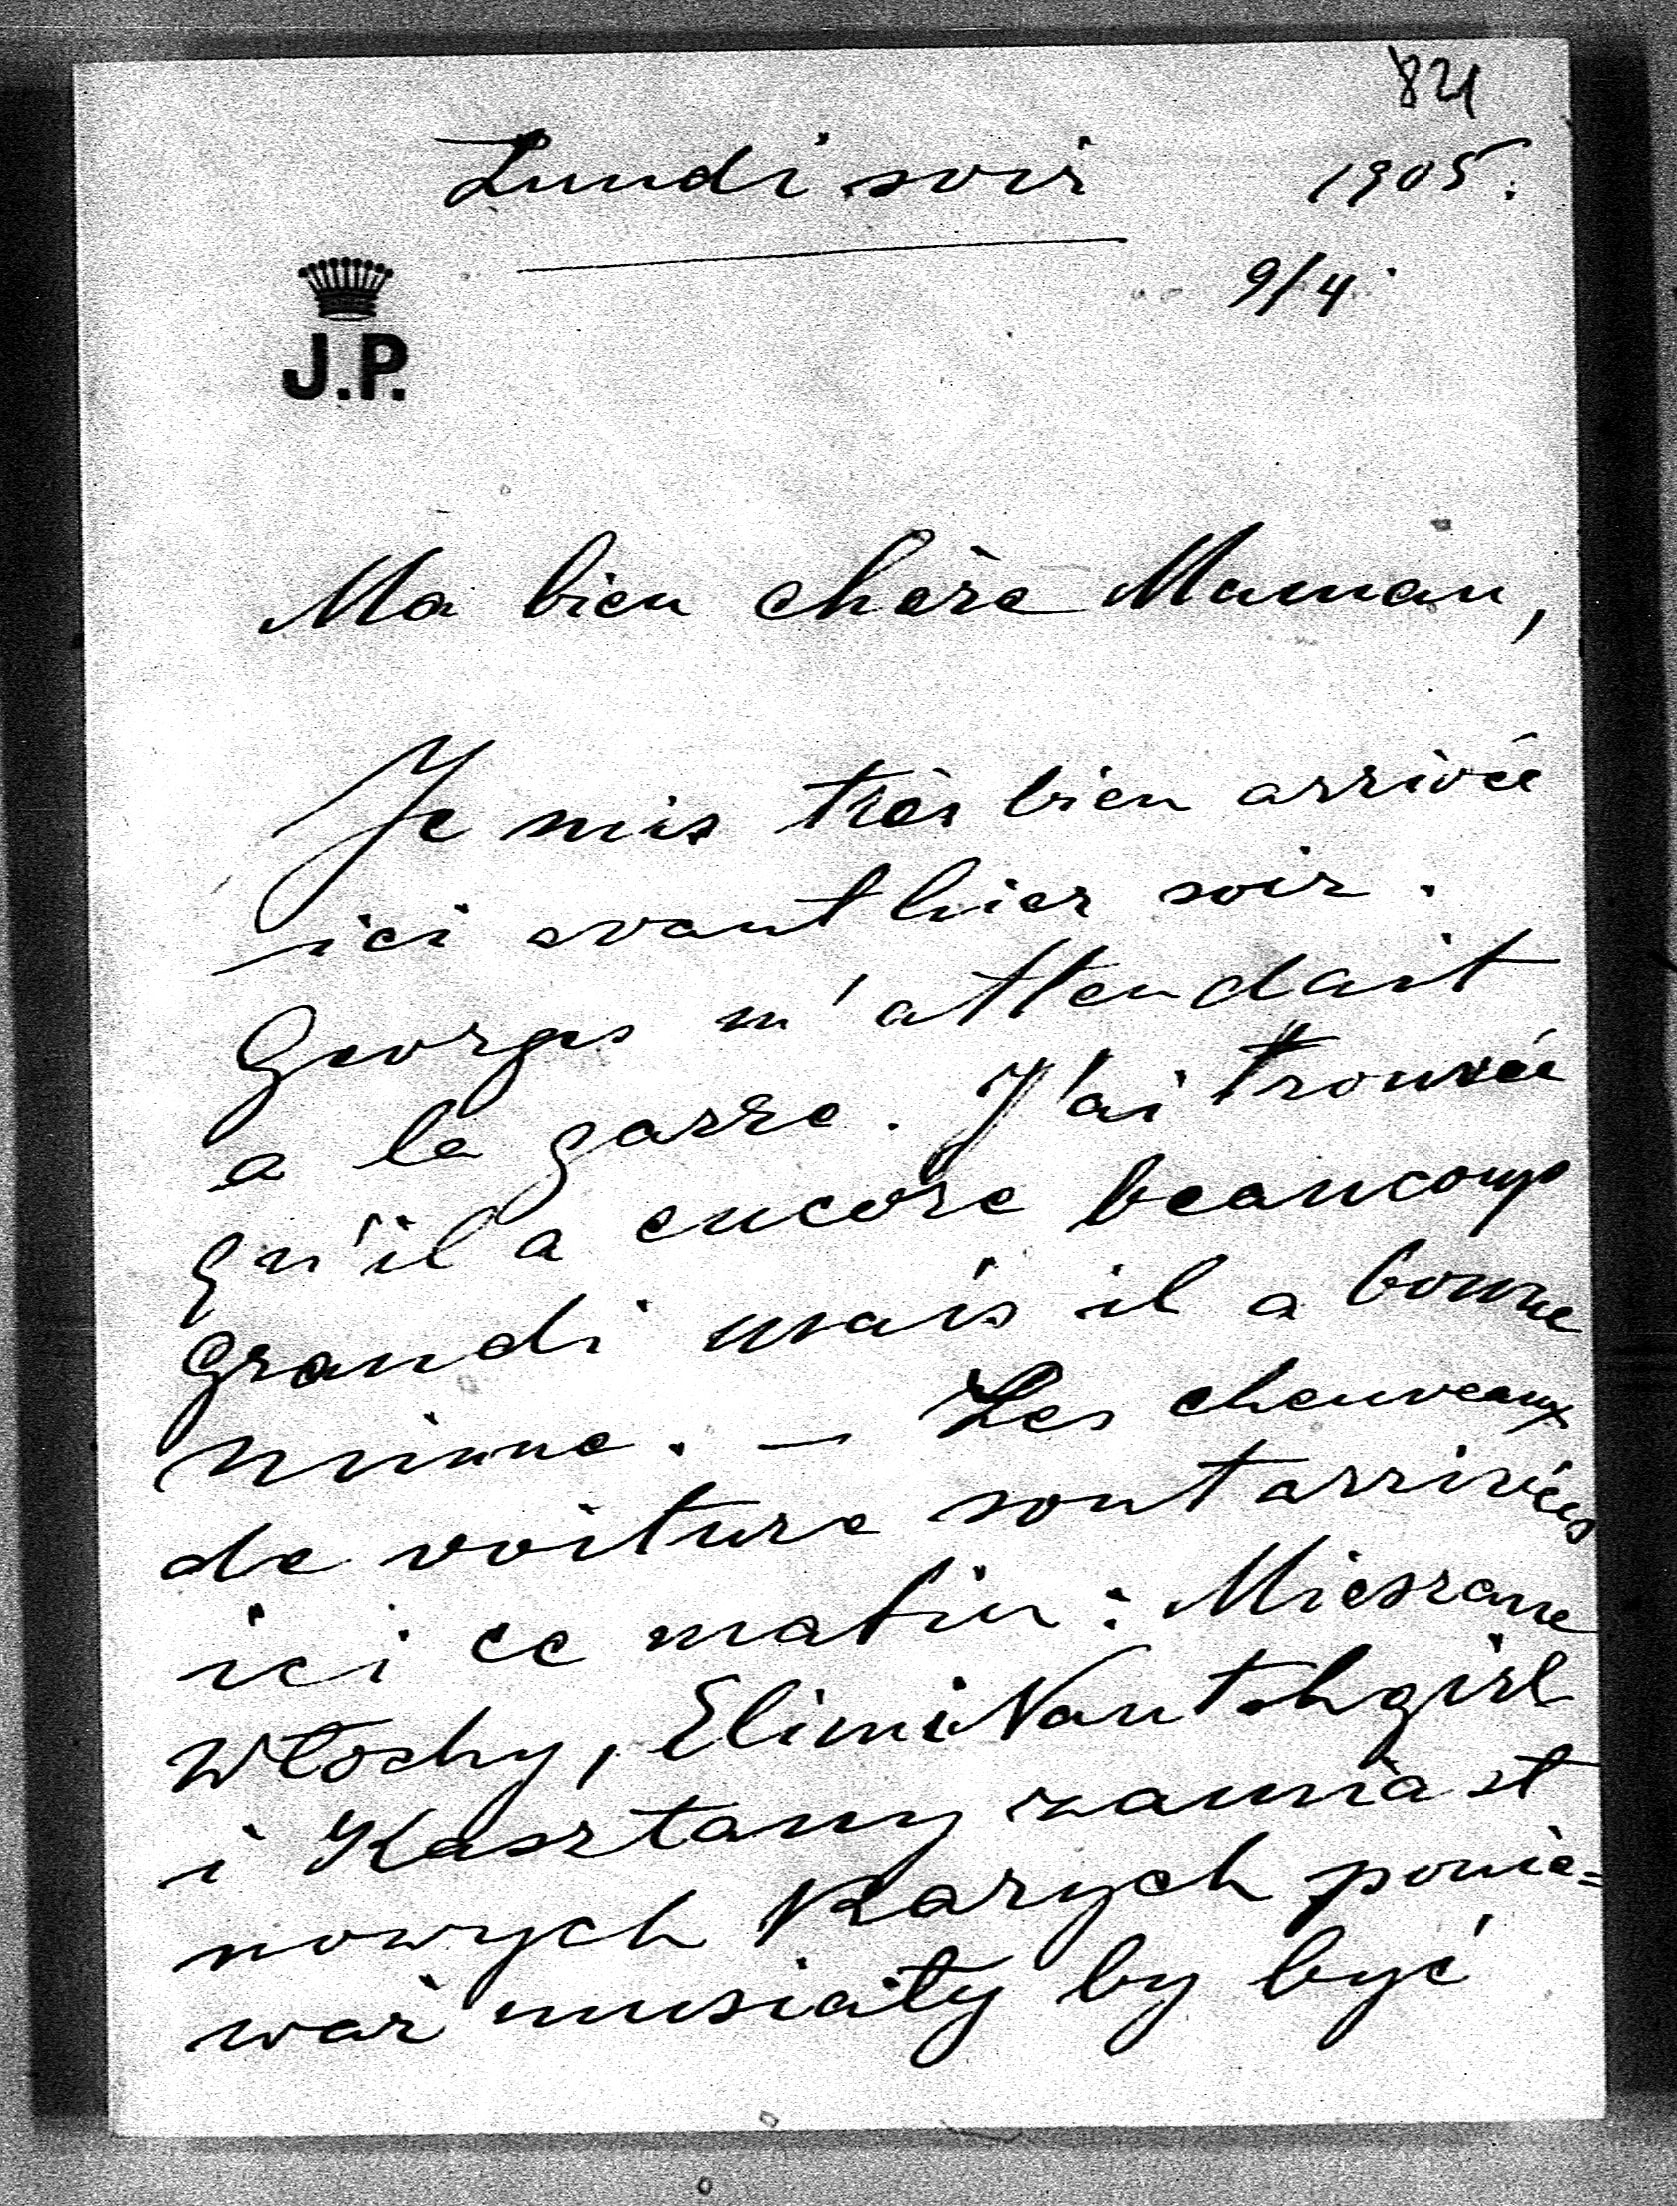 821
Lundi soir 1905.
9/4.
J.P.
Ma bien chère Maman,
Je suis très bien arrivée
ici avant hier soir.
Georges m'attendait
a la garre. J'ai trouvée
qu'il a encore beaucoup
grandi mais il a bonne
minne. — Les cheuveaux
de voiture sont arrivées
ici ce matin: Mieszane
Włochy, Elimi Nautshgirl
i Kasztany zamiast
nowych Karych ponie=
waż musiały by być